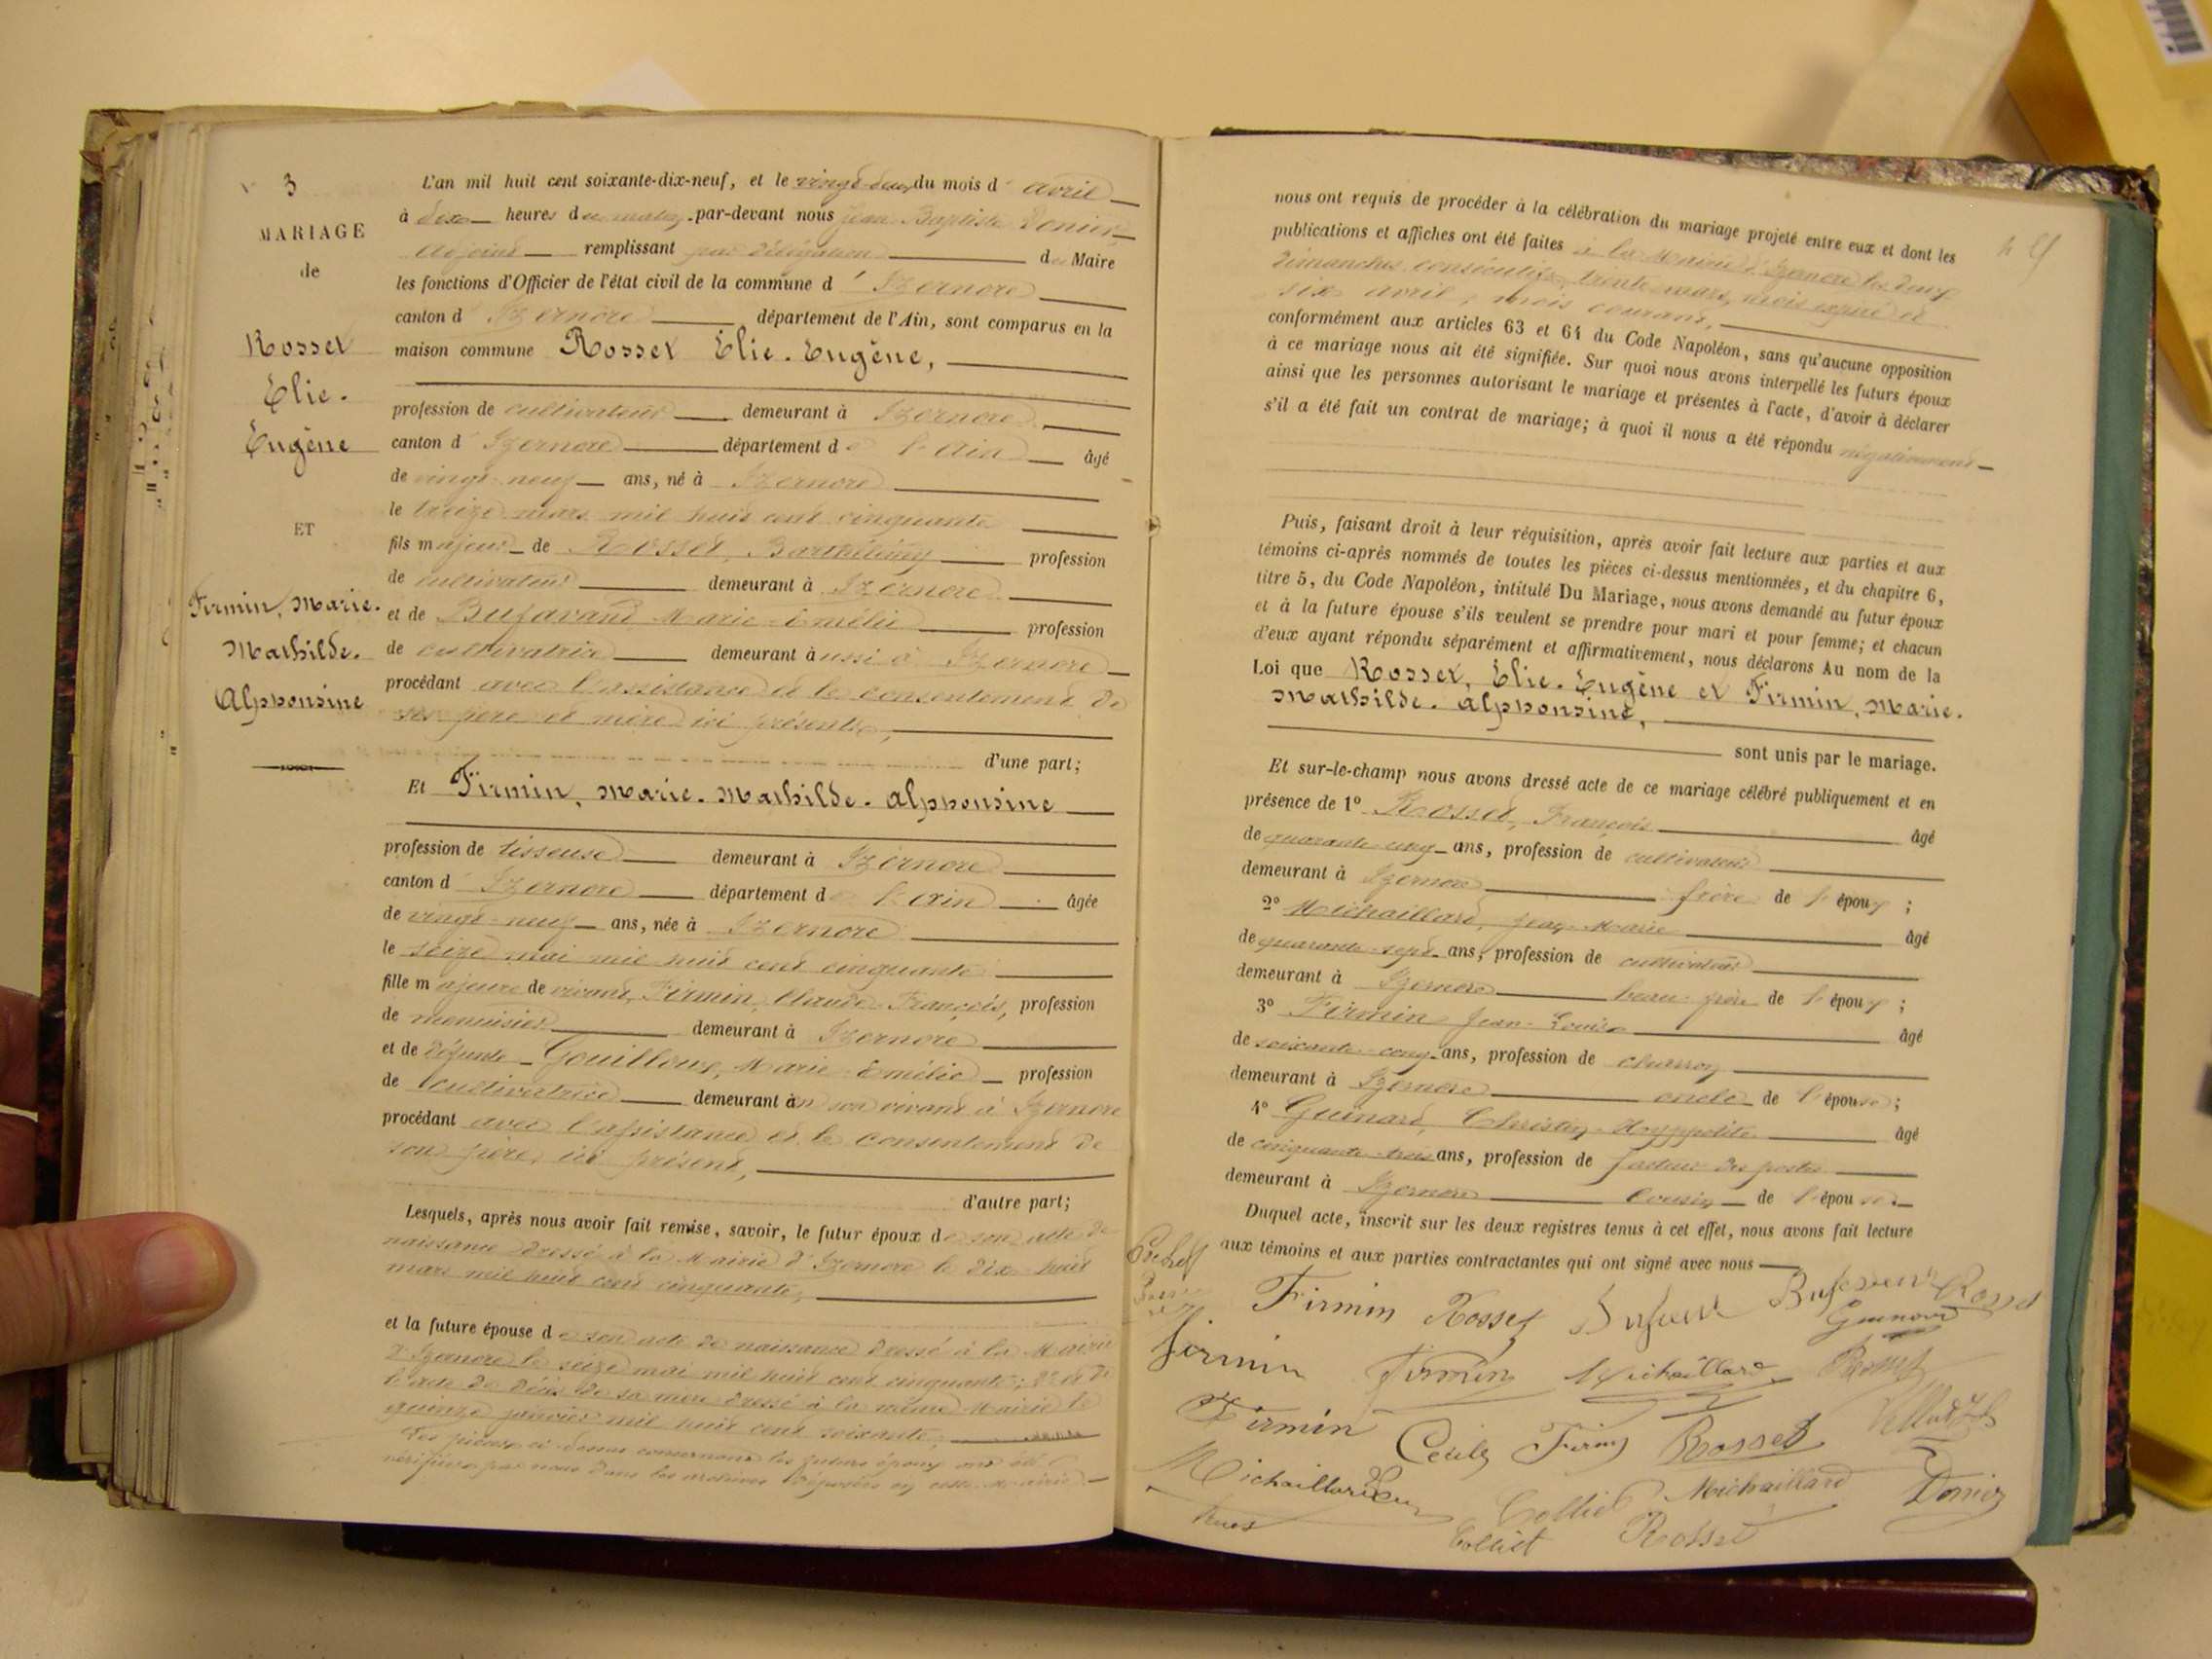 3
MARIAGE
de
Rosset
Élie.
Eugène
ET
Firmin, Marie.
Mathilde.
Alphonsine
L'an mil huit cent soixante-dix-neuf, et le vingt-deux du mois d' avril
à dix heures du matin par-devant nous Jean Baptiste Donier
adjoint remplissant par délégation du Maire
les fonctions d'Officier de l'état civil de la commune d' Izernore
canton d' Izernore département de l'Ain, sont comparus en la
maison commune Rosset Élie. Eugène,
profession de cultivateur demeurant à Izernore
canton d' Izernore département de l'Ain âgé
de vingt-neuf ans, né à Izernore
le treize mars mil huit cent cinquante
fils majeur de Rosset, Barthélemy profession
de cultivateur demeurant à Izernore
et de Bufavand Marie Émélie profession
de cultivatrice demeurant aussi à Izernore
procédant avec l'assistance et le consentement de
ses père et mère ici présents,
d'une part;
Et Firmin, Marie. Mathilde. Alphonsine
profession de tisseuse demeurant à Izernore
canton d' Izernore département de l'Ain âgée
de vingt-neuf ans, née à Izernore
le seize mai mil huit cent cinquante
fille majeure de vivant, Firmin, Claude François, profession
de menuisier demeurant à Izernore
et de défunte Gouilloux, Marie Émélie profession
de cultivatrice demeurant en son vivant à Izernore
procédant avec l'assistance et le consentement de
son père, ici présent,
d'autre part;
Lesquels, après nous avoir fait remise, savoir, le futur époux de son acte de
naissance dressé à la Mairie d'Izernore le dix-huit
mars mil huit cent cinquante,
et la future épouse de son acte de naissance dressé à la Mairie
d'Izernore le seize mai mil huit cent cinquante; 2° et de
l'acte de décès de sa mère dressé à la même Mairie le
quinze janvier mil huit cent soixante,
Les pièces ci-dessus concernant les futurs époux ont été
vérifiées par nous dans les archives déposées en cette Mairie
nous ont requis de procéder à la célébration du mariage projeté entre eux et dont les
publications et affiches ont été faites à la Mairie d'Izernore les deux
dimanches consécutifs, trente mars, mois expiré et
six avril, mois courant,
conformément aux articles 63 et 64 du Code Napoléon, sans qu'aucune opposition
à ce mariage nous ait été signifiée. Sur quoi nous avons interpellé les futurs époux
ainsi que les personnes autorisant le mariage et présentes à l'acte, d'avoir à déclarer
s'il a été fait un contrat de mariage; à quoi il nous a été répondu négativement
Puis, faisant droit à leur réquisition, après avoir fait lecture aux parties et aux
témoins ci-après nommés de toutes les pièces ci-dessus mentionnées, et du chapitre 6,
titre 5, du Code Napoléon, intitulé Du Mariage, nous avons demandé au futur époux
et à la future épouse s'ils veulent se prendre pour mari et pour femme; et chacun
d'eux ayant répondu séparément et affirmativement, nous déclarons Au nom de la
Loi que Rosset, Élie. Eugène et Firmin, Marie.
Mathilde. Alphonsine,
sont unis par le mariage.
Et sur-le-champ nous avons dressé acte de ce mariage célébré publiquement et en
présence de 1° Rosset, François âgé
de quarante-un ans, profession de cultivateur
demeurant à Izernore frère de l'époux;
2° Michaillard, Jean-Marie âgé
de quarante-sept ans, profession de cultivateur
demeurant à Izernore beau-frère de l'époux;
3° Firmin Jean-Louis âgé
de soixante-cinq ans, profession de charron
demeurant à Izernore oncle de l'épouse;
4° Guinard, Christin Hyppolite âgé
de cinquante-trois ans, profession de facteur des postes
demeurant à Izernore cousin de l'épouse
Duquel acte, inscrit sur les deux registres tenus à cet effet, nous avons fait lecture
aux témoins et aux parties contractantes qui ont signé avec nous
Firmin Rosset Rosset
Guinard
Firmin Firmin Michaillard Rosset
Firmin Cécile Firmin Rosset
Michaillard Colliet Michaillard Donier
Colliet Rosset